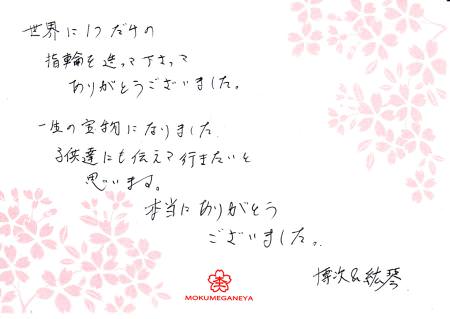 世界に1つだけの
指輪を造って下さって
ありがとうございました。
一生の宝物になりました
子供達にも伝えて行きたいと
思います。
本当にありがとう
ございました。
博次&絃琴
MOKUMEGANEYA